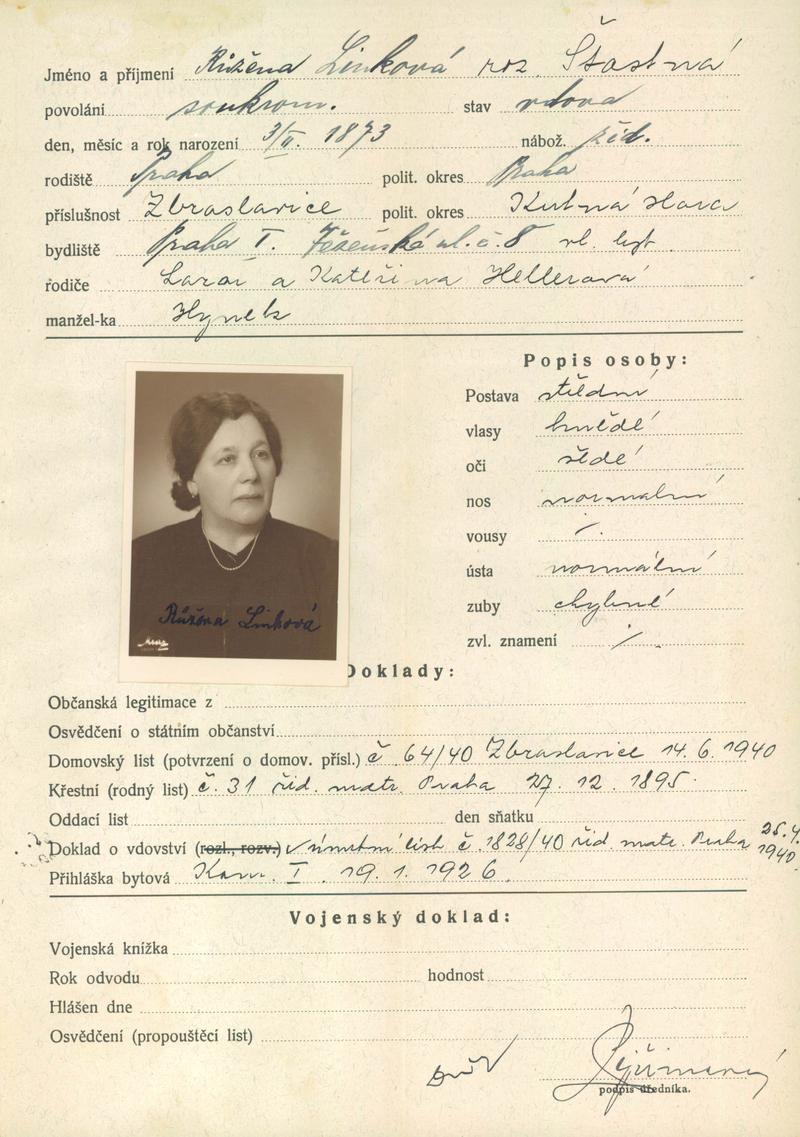 Jméno a příjmení Růžena Linková roz. Šťastná
povolání soukrom. stav vdova
den, měsíc a rok narození 3/II. 1873 nábož. žid.
rodiště Praha polit. okres Praha
příslušnost Zbraslavice polit. okres Kutná Hora
bydliště Praha I. ul. č. 8 vl. byt
rodiče Lazar a Kateřina Hellerová
manžel-ka Hynek
Popis osoby:
Postava střední
vlasy hnědé
oči šedé
nos normalní
vousy /.
ústa normální
zuby chybné
zvl. znamení /.
Růžena Linková
Doklady:
Občanská legitimace z
Osvědčení o státním občanství
Domovský list (potvrzení o domov. přísl.) č 64/40 Zbraslavice 14. 6. 1940
Křestní (rodný list) č. 31 žid. matr. Praha 27. 12. 1895.
Oddací list den sňatku
Doklad o vdovství (rozl., rozv.) úmrtní list č. 1828/40 žid. matr. Praha 25. 4. 1940.
Přihláška bytová Kom. I. 19. 1. 1926.
Vojenský doklad:
Vojenská knížka
Rok odvodu hodnost
Hlášen dne
Osvědčení (propouštěcí list)
podpis úředníka.